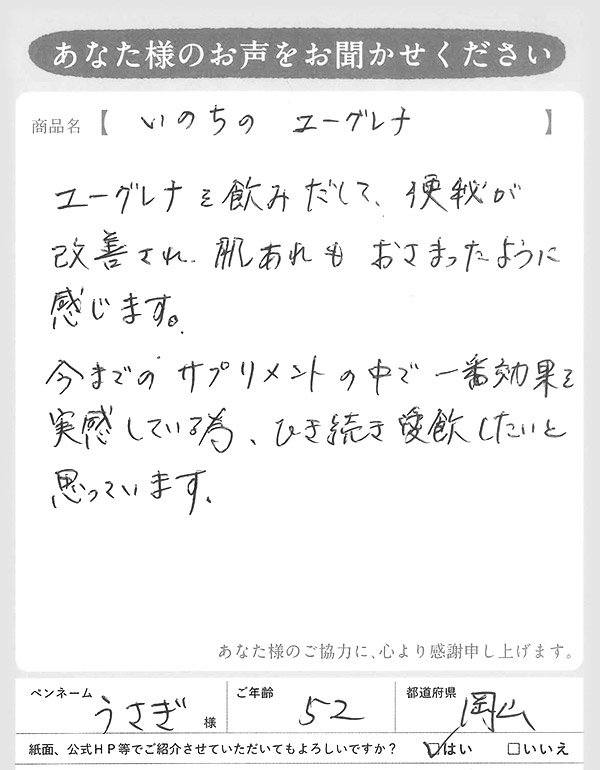 あなた様のお声をお聞かせください
商品名【 いのちの ユーグレナ 】
ユーグレナを飲みだして、便秘が
改善され、肌あれも おさまったように
感じます。
今までの サプリメントの中で 一番効果を
実感している為、ひき続き愛飲したいと
思っています。
あなた様のご協力に、心より感謝申し上げます。
ペンネーム うさぎ 様 ご年齢 52 都道府県 岡山
紙面、公式HP等でご紹介させていただいてもよろしいですか？ ☑はい □いいえ